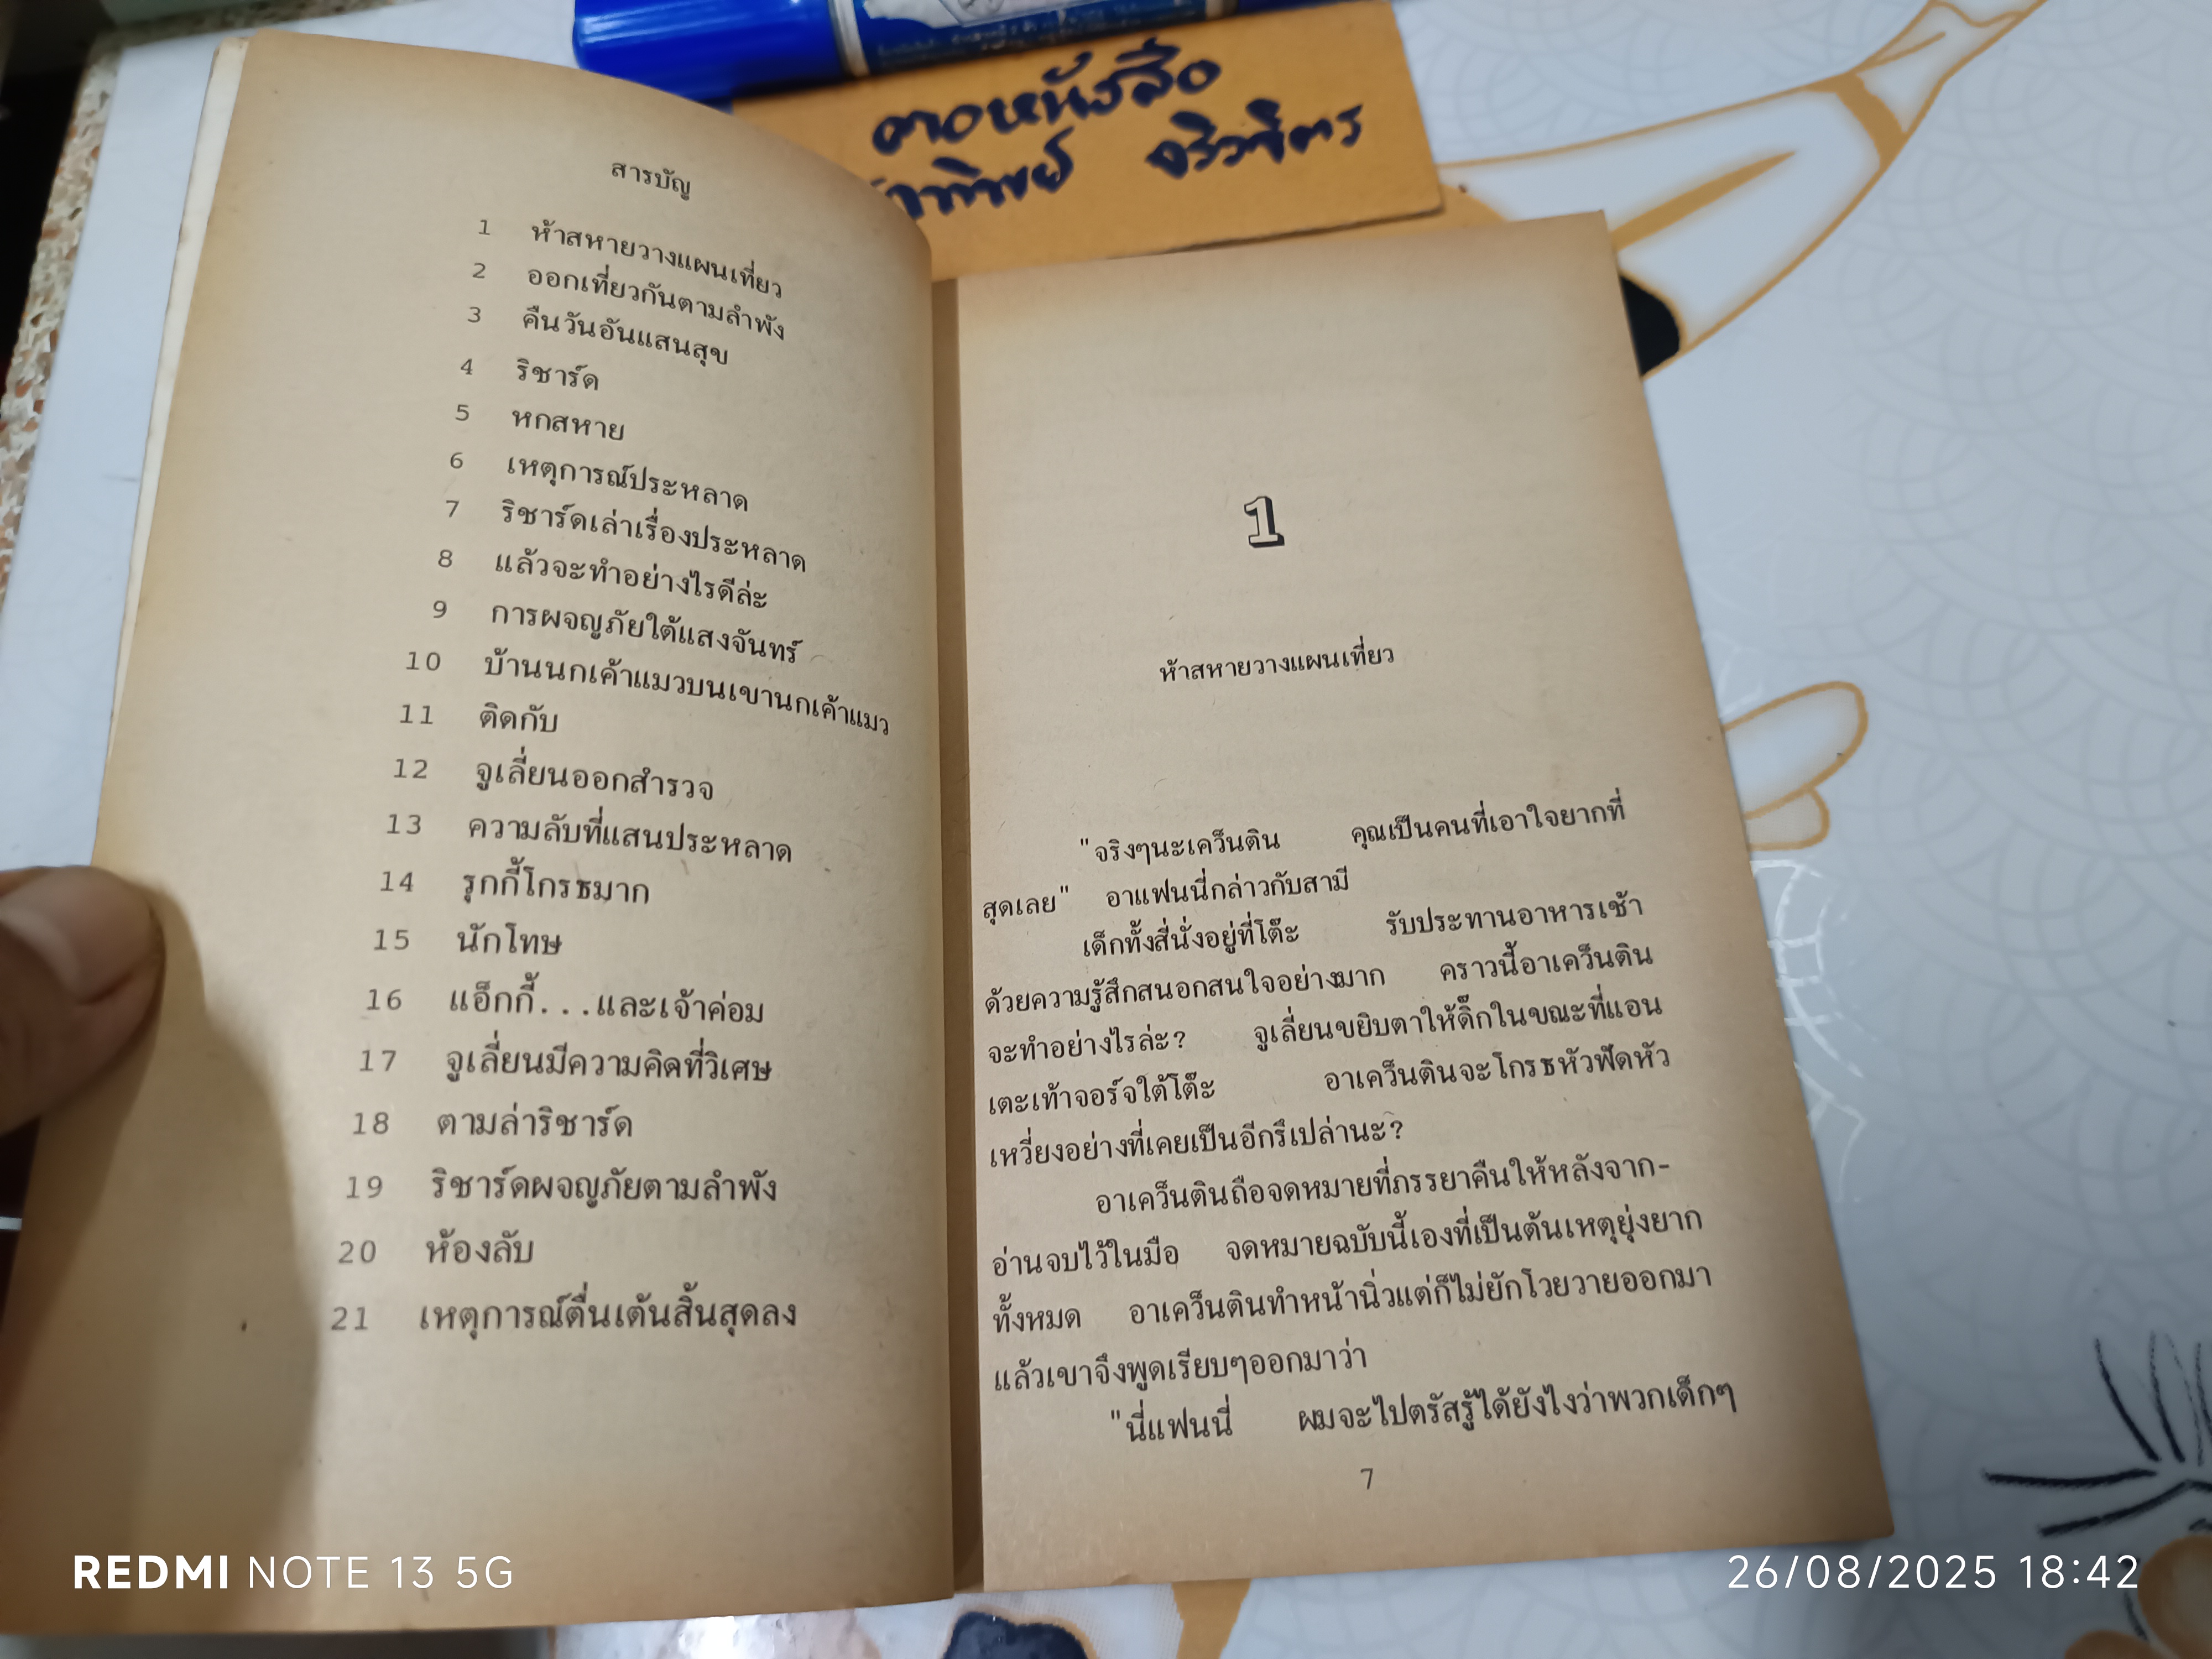 คอหนังสือ
สารบัญ
1 ห้าสหายวางแผนเที่ยว
2 ออกเที่ยวกันตามลำพัง
3 คืนวันอันแสนสุข
4 ริชาร์ด
5 หกสหาย
6 เหตุการณ์ประหลาด
7 ริชาร์ดเล่าเรื่องประหลาด
8 แล้วจะทำอย่างไรดีล่ะ
9 การผจญภัยใต้แสงจันทร์
10 บ้านนกเค้าแมวบนเขานกเค้าแมว
11 ติดกับ
12 จูเลี่ยนออกสำรวจ
13 ความลับที่แสนประหลาด
14 รุกกี้โกรธมาก
15 นักโทษ
16 แอ็กกี้...และเจ้าค่อม
17 จูเลี่ยนมีความคิดที่วิเศษ
18 ตามล่าริชาร์ด
19 ริชาร์ดผจญภัยตามลำพัง
20 ห้องลับ
21 เหตุการณ์ตื่นเต้นสิ้นสุดลง
1
ห้าสหายวางแผนเที่ยว
"จริงๆนะเคว็นติน คุณเป็นคนที่เอาใจยากที่
สุดเลย" อาแฟนนี่กล่าวกับสามี
เด็กทั้งสี่นั่งอยู่ที่โต๊ะ รับประทานอาหารเช้า
ด้วยความรู้สึกสนอกสนใจอย่างมาก คราวนี้อาเคว็นติน
จะทำอย่างไรล่ะ? จูเลี่ยนขยิบตาให้ดิ๊กในขณะที่แอน
เตะเท้าจอร์จใต้โต๊ะ อาเคว็นตินจะโกรธหัวฟัดหัว
เหวี่ยงอย่างที่เคยเป็นอีกรึเปล่านะ?
อาเคว็นตินถือจดหมายที่ภรรยาคืนให้หลังจาก-
อ่านจบไว้ในมือ จดหมายฉบับนี้เองที่เป็นต้นเหตุยุ่งยาก
ทั้งหมด อาเคว็นตินทำหน้านิ่วแต่ก็ไม่ยักโวยวายออกมา
แล้วเขาจึงพูดเรียบๆออกมาว่า
"นี่แฟนนี่ ผมจะไปตรัสรู้ได้ยังไงว่าพวกเด็กๆ
7
REDMI NOTE 13 5G
26/08/2025 18:42